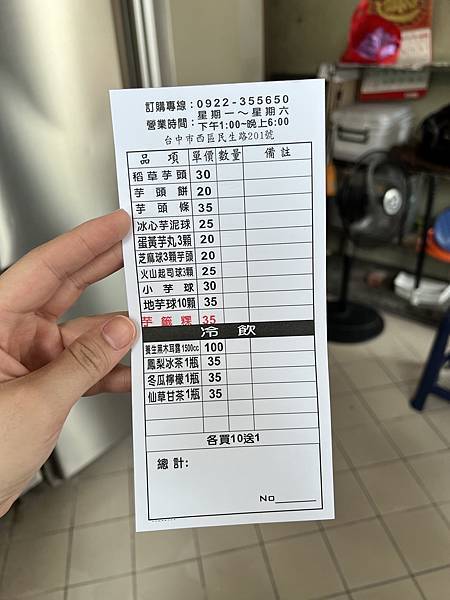 訂購專線：0922-355650
星期一～星期六
營業時間：下午1:00~晚上6:00
台中市西區民生路201號
品項 單價 數量 備註
稻草芋頭 30
芋頭餅 20
芋頭條 35
冰心芋泥球 25
蛋黃芋丸3顆 20
芝麻球3顆芋頭 20
火山起司球3顆 25
小芋球 30
地芋球10顆 35
芋籤粿 35
冷飲
養生黑木耳露1500cc 100
鳳梨冰茶1瓶 35
冬瓜檸檬1瓶 35
仙草甘茶1瓶 35
各買10送1
總計：
No